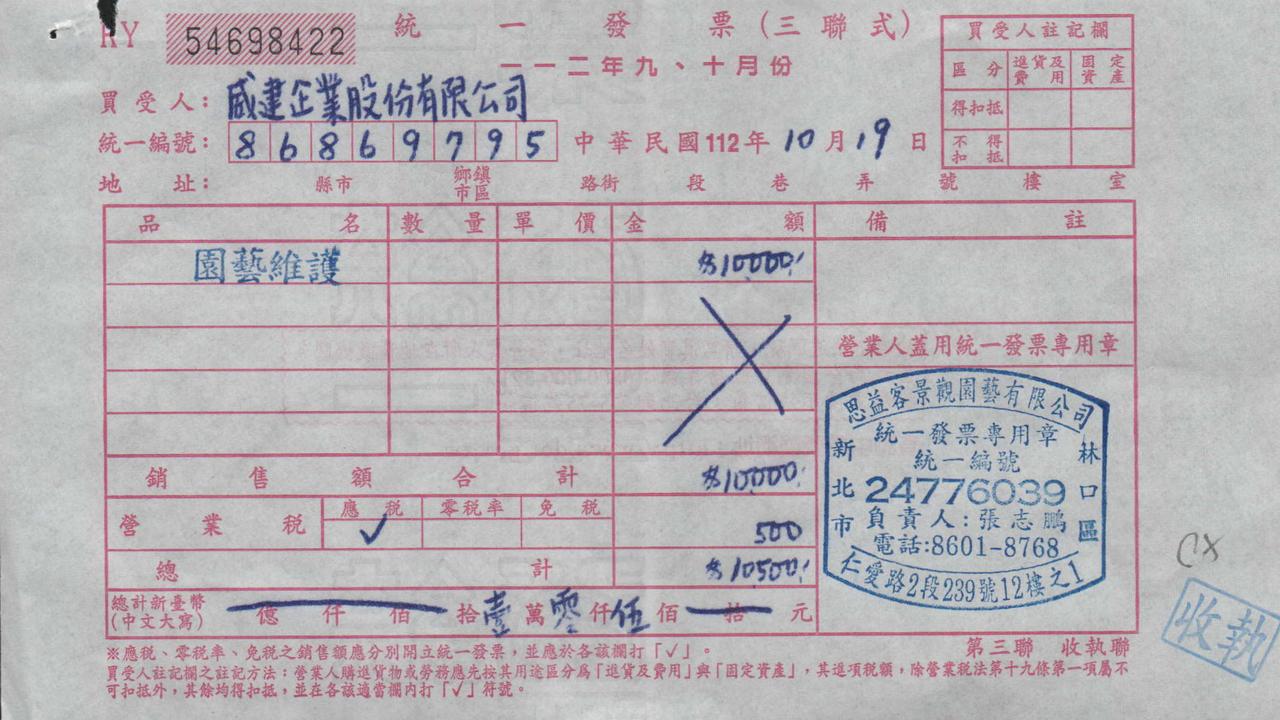 RY 54698422 統一發票(三聯式)
一一二年九、十月份
買受人註記欄
區分 進貨及費用 固定資產
得扣抵
不得扣抵
買受人: 威建企業股份有限公司
統一編號: 86869795 中華民國112年10月19日
地址: 縣市 鄉鎮市區 路街 段 巷 弄 號 樓 室
品名 數量 單價 金額 備註
園藝維護 $10000.-
營業人蓋用統一發票專用章
銷售額合計 $10000.-
營業稅 應稅 零稅率 免稅
✓ 500
總計 $10500.-
總計新臺幣(中文大寫) 億 仟 佰 拾壹萬零仟伍佰 拾 元
思益客景觀園藝有限公司
統一發票專用章
統一編號
24776039
負責人:張志鵬
電話:8601-8768
新北市 林口區
仁愛路2段239號12樓之1
CX
收執
第三聯 收執聯
※應稅、零稅率、免稅之銷售額應分別開立統一發票,並應於各該欄打「✓」。
買受人註記欄之註記方法:營業人購進貨物或勞務應先按其用途區分為「進貨及費用」與「固定資產」,其進項稅額,除營業稅法第十九條第一項屬不
可扣抵外,其餘均得扣抵,並在各該適當欄內打「✓」符號。